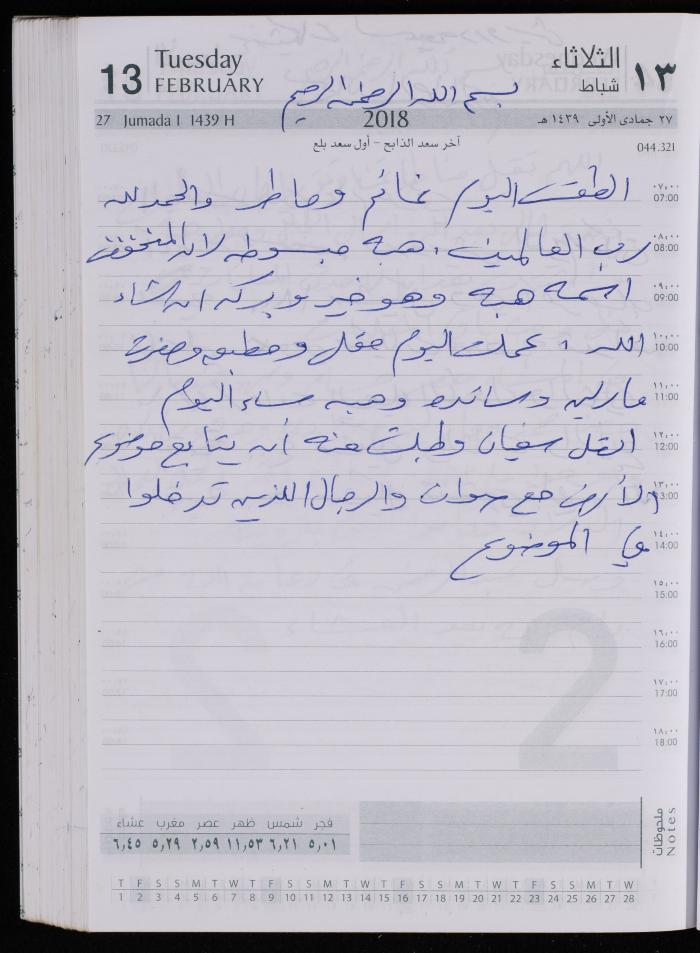 13 Tuesday FEBRUARY
الثلاثاء ١٣
شباط
بسم الله الرحمن الرحيم
27 Jumada I 1439 H 2018 ٢٧ جمادى الأولى ١٤٣٩ هـ
آخر سعد الذابح - أول سعد بلع 044.321
الطقس اليوم غائم وماطر والحمد لله
٠٧:٠٠ 07:00
رب العالمين، هبه مبسوطه لان
٠٨:٠٠ 08:00
اسمه هبه وهو خير وبركه ان شاء
٠٩:٠٠ 09:00
الله، عملت اليوم مقل ومطبق
١٠:٠٠ 10:00
مارلين وسانده وهبه مساء اليوم
١١:٠٠ 11:00
اتصل سفيان وطلبت منه أن يتابع موضوع
١٢:٠٠ 12:00
الأرض مع مروان والرجال اللذين تدخلوا
١٣:٠٠ 13:00
في الموضوع
١٤:٠٠ 14:00
١٥:٠٠ 15:00
١٦:٠٠ 16:00
١٧:٠٠ 17:00
١٨:٠٠ 18:00
2
فجر شمس ظهر عصر مغرب عشاء
٥,٠١ ٦,٢١ ١١,٥٣ ٢,٥٩ ٥,٢٩ ٦,٤٥
ملحوظات
Notes
T F S S M T W T F S S M T W T F S S M T W T F S S M T W
1 2 3 4 5 6 7 8 9 10 11 12 13 14 15 16 17 18 19 20 21 22 23 24 25 26 27 28